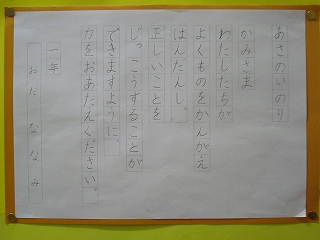 あさのいのり
かみさま
わたしたちが
よくものをかんがえ
はんだんし、
正しいことを
じっこうすることが
できますように、
力をおあたえください。
一年
おだななみ